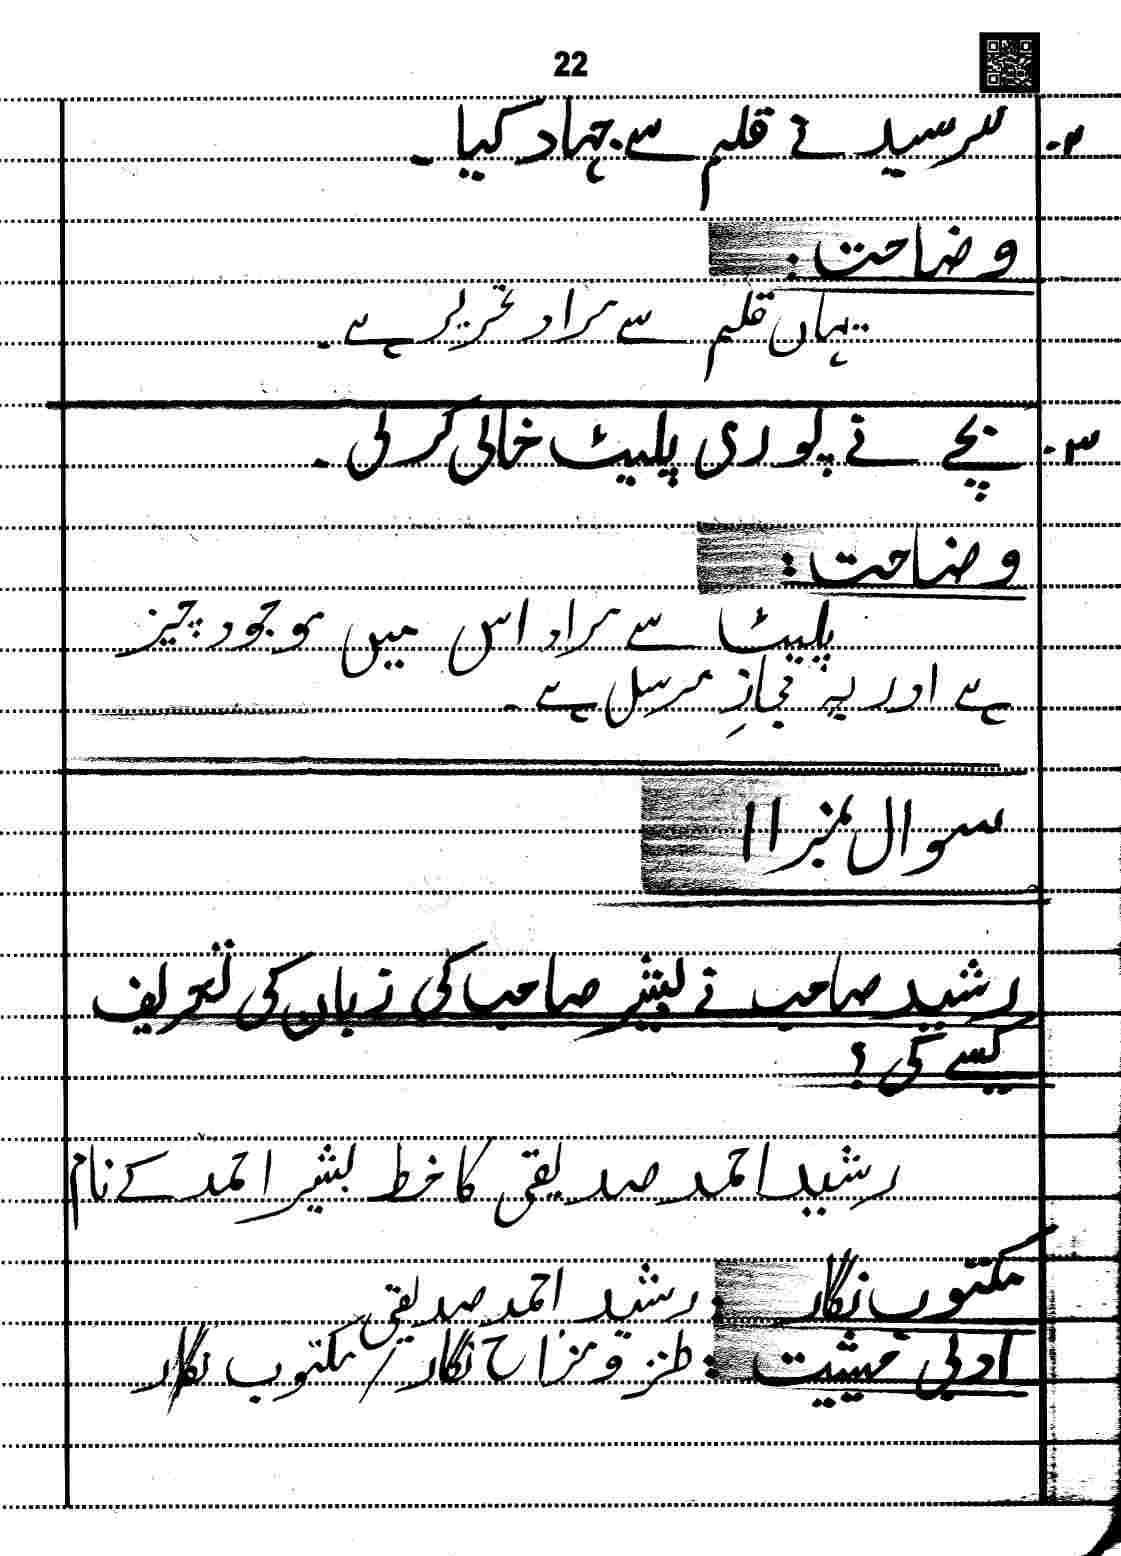 22
۲. سرسید نے قلم سے جہاد کیا۔
وضاحت:
یہاں قلم سے مراد تحریر ہے۔
۳. بچے نے پوری پلیٹ خالی کر لی۔
وضاحت:
پلیٹ سے مراد اس میں موجود چیز
ہے اور یہ مجازِ مرسل ہے۔
سوال نمبر ۱۱
رشید صاحب نے بشیر صاحب کی زبان کی تعریف
کیسے کی؟
رشید احمد صدیقی کا خط بشیر احمد کے نام
مکتوب نگار: رشید احمد صدیقی
ادبی حیثیت: طنز و مزاح نگار / مکتوب نگار